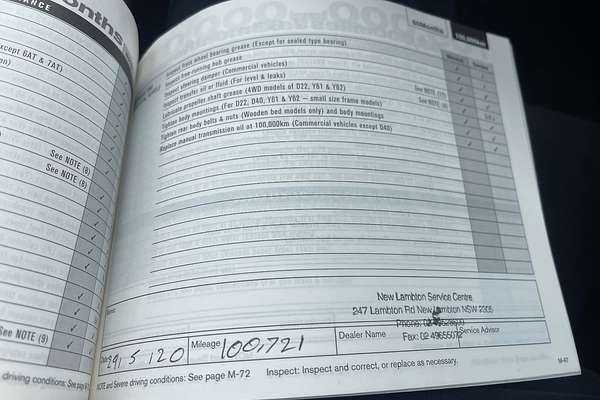 onths
ANCE
xcept 6AT & 7AT)
See NOTE (9)
See NOTE (9)
See NOTE (9)
driving conditions: See page
60Months
100,000km
Inspect front wheel bearing grease (Except for sealed type bearing)
Inspect free-running hub grease
Inspect steering damper (Commercial vehicles)
Inspect transfer oil or fluid (For level & leaks)
Lubricate propeller shaft grease (4WD models of D22, Y61 & Y62)
Tighten body mountings (For D22, D40, Y61 & Y62 – small size frame models)
Tighten rear body bolts & nuts (Wooden bed models only) and body mountings
Replace manual transmission oil at 100,000km (Commercial vehicles except D40)
New Lambton Service Centre
247 Lambton Rd New Lambton NSW 2305
Phone: 02
Date 29 / 5 / 20
Mileage 100,721
Dealer Name
Fax: 02 49655072
Service Advisor
NOTE and Severe driving conditions: See page M-72
Inspect: Inspect and correct, or replace as necessary.
M-67